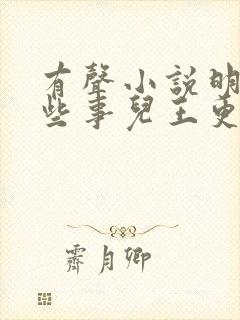 有聲小説明
些事兒王更
霽月卿